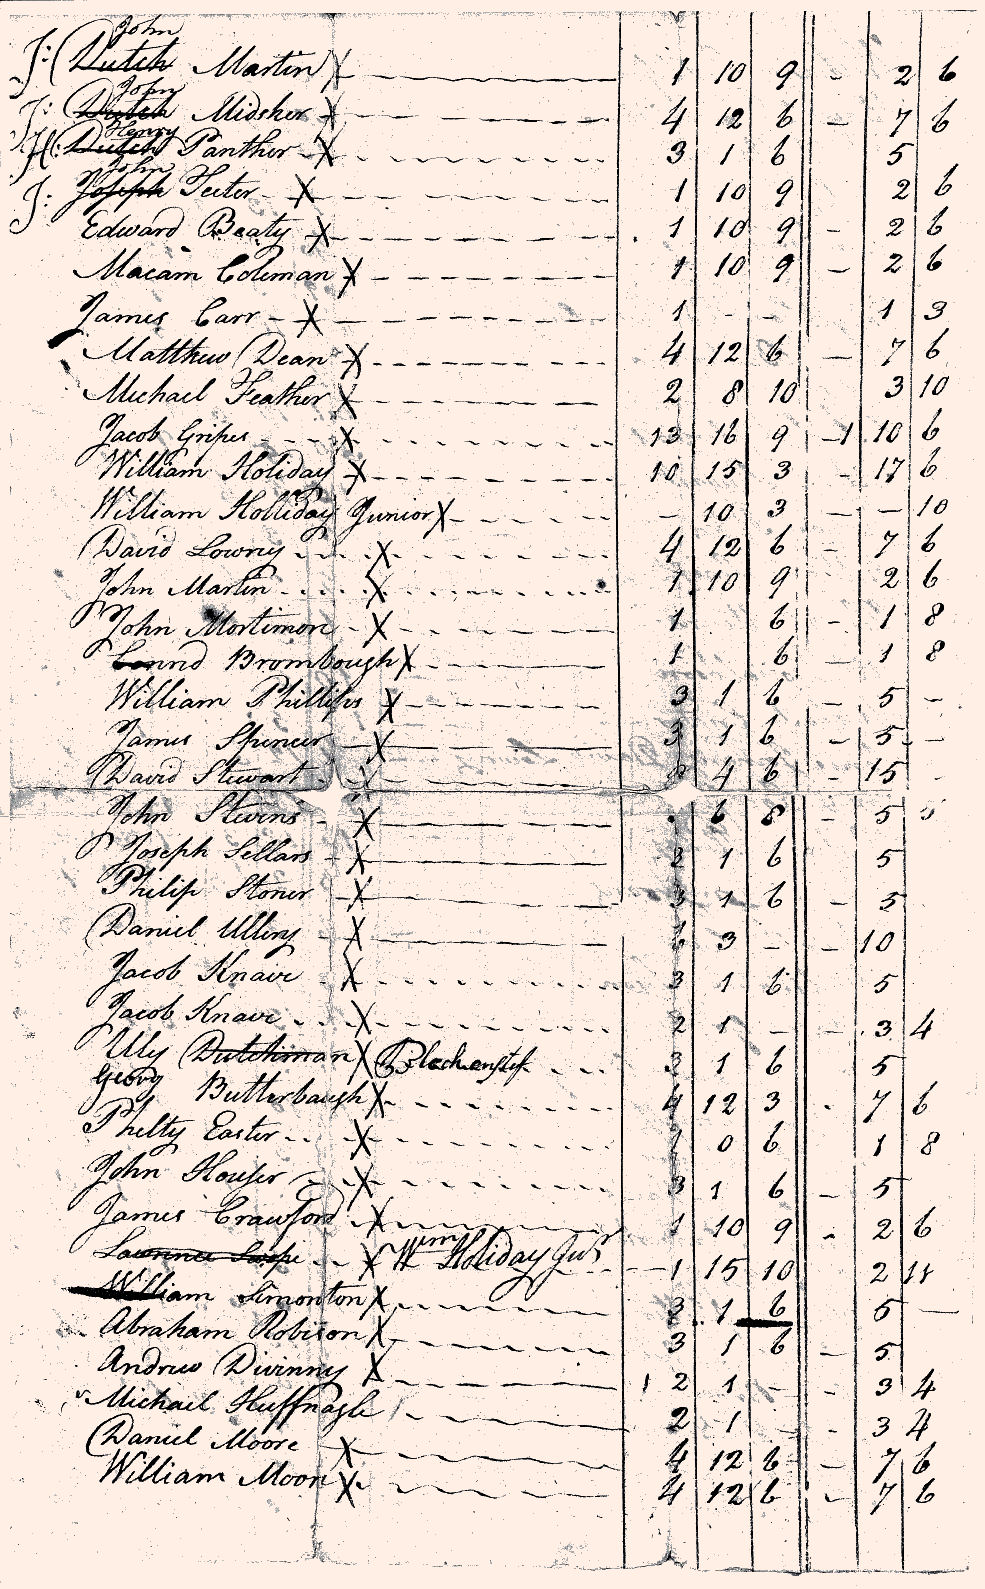 John
J: Dutch Martin X 1 10 9 - 2 6
John
J: Dutch Midsker X 4 12 6 - 7 6
Henry
H: Dutch Panther X 3 1 6 5
John
J: Joseph Teeter X 1 10 9 2 6
Edward Beaty X 1 10 9 - 2 6
Macam Coleman X 1 10 9 - 2 6
James Carr X 1 - - 1 3
Matthew Dean X 4 12 6 - 7 6
Michael Feather X 2 8 10 3 10
Jacob Gripes X 13 16 9 - 1 10 6
William Holiday X 10 15 3 - 17 6
William Holliday Junior X - 10 3 - - 10
David Lowry X 4 12 6 - 7 6
John Martin X 1 10 9 2 6
John Mortimon X 1 6 - 1 8
Brombough X 1 6 - 1 8
William Phillips X 3 1 6 - 5 -
James Spencer X 3 1 6 - 5 -
David Stewart X 4 6 - 15 -
John Stevins X 6 8 - 5
Joseph Sellars X 1 6 5
Philip Stoner X 3 1 6 - 5
Daniel Ullery X 6 3 - - 10
Jacob Knave X 3 1 6 5
Jacob Knave X 2 1 - - 3 4
Ully Dutchman X 3 1 6 5
Georg Butterbaugh X 4 12 3 7 6
Phelty Easter X 1 0 6 1 8
John Houser X 3 1 6 - 5
James Crawford X 1 10 9 - 2 6
Lawrence Swope X Wm Holiday Junr 1 15 10 2 11
William Simonton X 3 1 6 5 -
Abraham Robison X 3 1 6 - 5
Andrew Divinny X 2 1 - - 3 4
Michael Huffnagle 2 1 - 3 4
Daniel Moore X 4 12 6 - 7 6
William Moon X 4 12 6 - 7 6